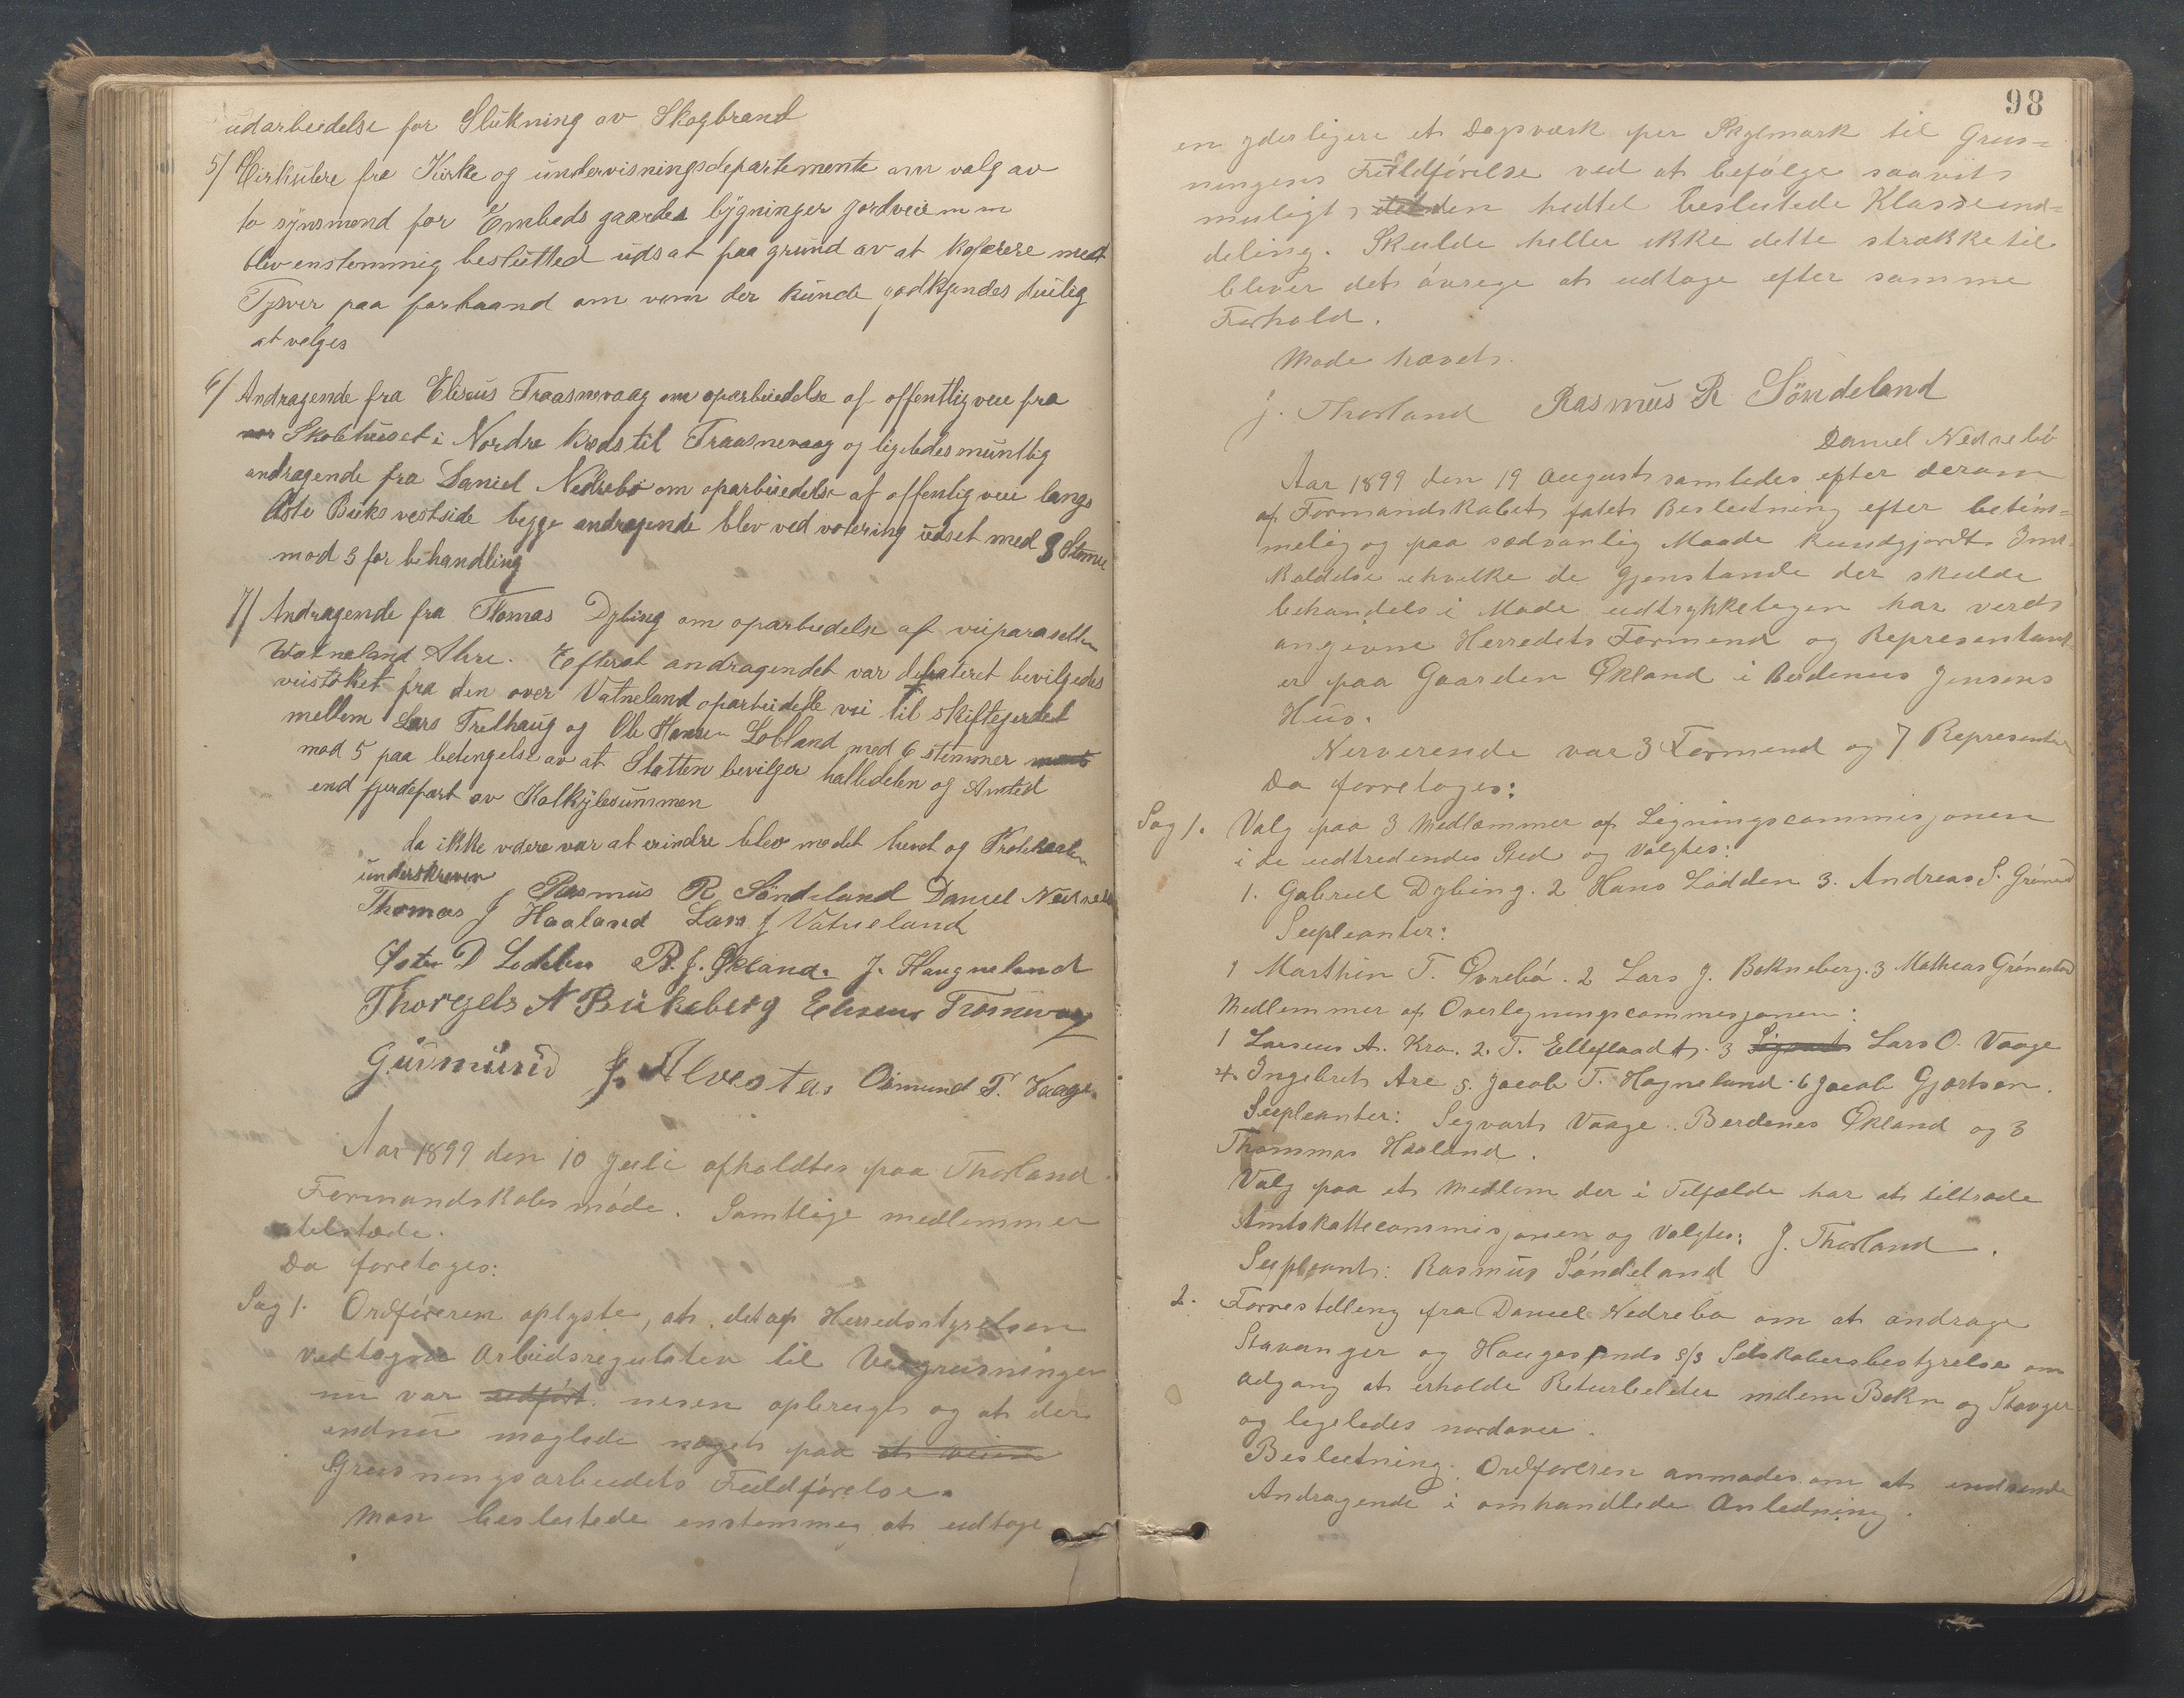 udarbeidelse for Slukning av Skogbrand
5/ Cirkulere fra Kirke og undervisningsdepartemente om valg av
to synsmend for Embeds gaardes bygninger jordveie m m
blev enstemmig beslutted udsat paa grund av at kofærere med
Tysver paa forhaand om vem der kunde godkjendes duelig
at velges
6/ Andragende fra Eliseus Traasnevaag om oparbeidelse af offentlig vei fra
Skolehuset i Nordre kreds til Traasnevaag og ligeledes muntlig
andragende fra Daniel Nedrebö om oparbeidelse af offenlig vei langs
Øste Buks vestside begge andragende blev ved votering udset med 8 Stemer
mod 3 for behandling
7/ Andragende fra Thomas Dybing om oparbeidelse af veiparsellen
Vatneland Are. Efterat andragendet var debateret bevilgedes
veistöket fra den over Vatneland oparbeidede vei til skiftegerdet
mellem Lars Trelhaug og Ole Hansen Lobland med 6 stemmer
mod 5 paa betingelse av at Statten bevilger halledelen og Amted
end fjerdepart av Kalkylesummen
da ikke videre var at erindre blev mødet hevet og Protokolen
underskreven
Rasmus R Söndeland Daniel Nedrebö
Thomas J Haaland Lars J Vatneland
Østen D Lodden B. J. Økland. J. Haugneland
Thorgels N Bukeberg Eliseus Trosnevaag
Gudmund J. Alvestad Osmund T. Vaage.
Aar 1899 den 10 Juli afholdtes paa Thorland
Formandskabsmöde. Samtlige medlemmer
tilstæde.
Da foretoges:
Sag 1. Ordföreren oplyste, at det af Herredsstyrelsen
vedtagne Arbeidsregulativ til Veigrusningen
nu var udfört nesen opbrugt og at der
endnu manglede noget paa at veien
Grusningsarbeidets Fuldförelse.
Man besluttede enstemmig at udtage
98
en yderligere et Dagsværk per Skylmark til Grus=
ningens Fuldförelse ved at befölge saavit
muligt, det den hidtil besluttede Klasseind=
deling. Skulde heller ikke dette strække til
bliver det övrege at udtage efter samme
Forhold.
Möde hævet.
J. Thorland Rasmus R Söndeland
Daniel Nedrebö
Aar 1899 den 19 August samledes efter derom
af Formandskabet fatet Beslutning efter betim=
melig og paa sædvanlig Maade kundgjordt Ind=
kaldelse ihvilke de Gjenstande der skulde
behandels i Möde udtrykkelegen har verdt
angivne Herredets Formend og Representant=
er paa Gaarden Økland i Berdenus Jensens
Hus.
Nerverende var 3 Formend og 7 Representer
Da forretoges:
Sag 1. Valg paa 3 Medlemmer af Ligningscommisjonen
i de udtredendes Sted og Valgtes:
1. Gabriel Dybing. 2 Hans Lodden 3. Andreas S. Grönnes
Supleanter:
1 Marthin T. Övrebö. 2 Lars J. Bokneberg. 3 Mathias Grönestad
Medlemmer af Overlegningscommisjonen:
1 Larseus A. Kro. 2. T. Elleflaadt. 3 Sigvart Lars O. Vaage
4 Ingebret Are 5. Jacob T. Hogneland. 6 Jacob Gjertsen.
Supleanter: Segvart Vaage. Berdenes Økland og 3
Thommas Haaland.
Valg paa et Medlem der i Tilfælde har at tiltræde
Amtskattecommisjonen og Valgtes: J. Thorland.
Supleant: Rasmus Söndeland
2. Forrestelleng fra Daniel Nedrebö om at andrage
Stavanger og Haugesunds S/S Selskabersbestyrelse om
adgang at erholde Returbeleter mellem Bokn og Stavger
og legeledes nordover.
Beslutning: Ordföreren anmodes om at endsende
Andragende i omhandlede Anledning.